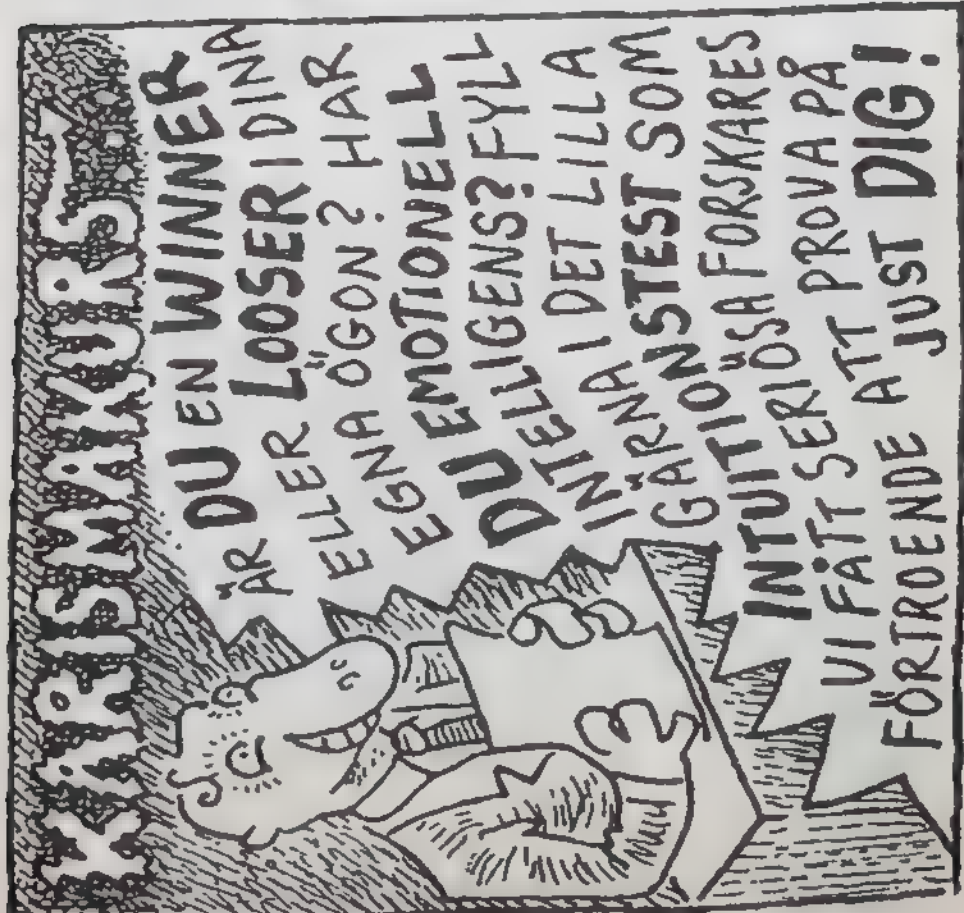 KARISMAKURS 7
ÄR DU EN WINNER
ELLER LOOSER I DINA
EGNA ÖGON? HAR
DU EMOTIONELL
INTELIGENS? FYLL
GÄRNA I DET LILLA
INTUITIONSTEST SOM
VI FÅTT SERIÖSA FORSKARES
FÖRTROENDE ATT PROVA PÅ
JUST DIG!